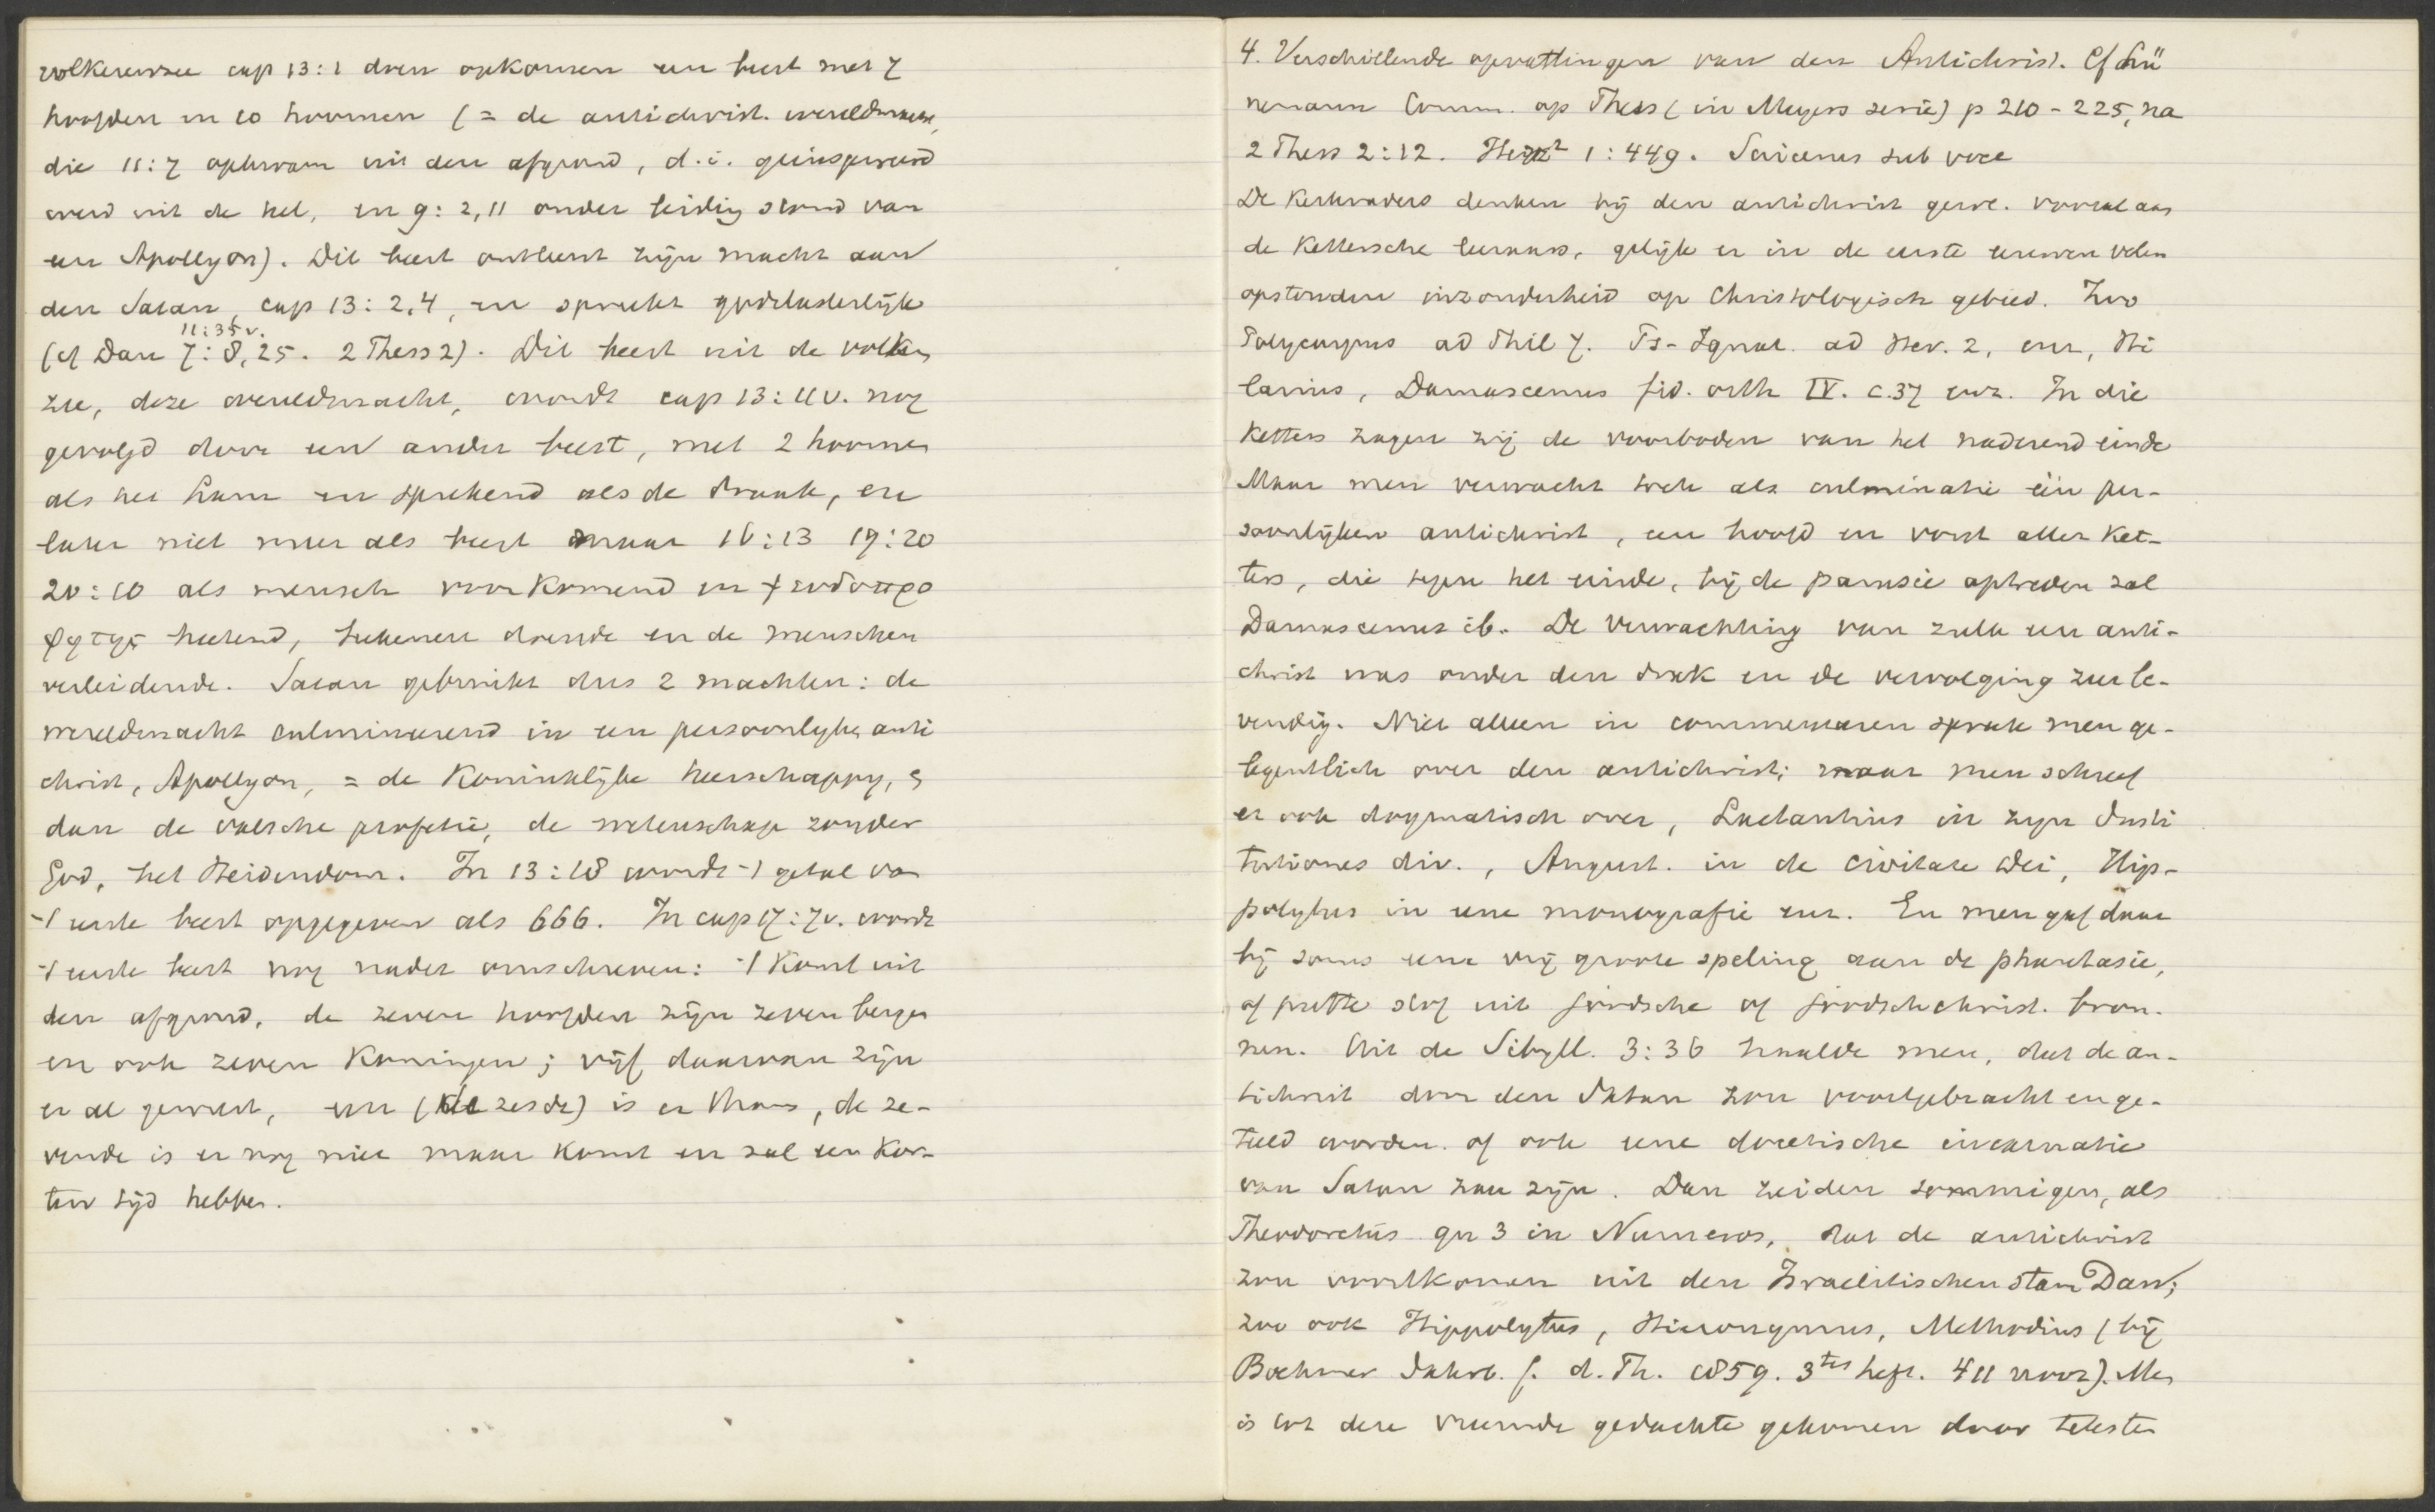 volkerenzee cap 13:1 doen opkomen een beest met 7
hoofden en 10 hoornen (= de antichrist. wereldmacht,
die 11:7 opkwam uit den afgrond, d.i. geinspireerd
werd uit de hel, en 9:2,11 onder leiding stond van
een Apollyon). Dit beest ontleent zijn macht aan
den Satan, cap 13:2,4, en spreekt godslasterlijk
11:35v.
(cf Dan 7:8,25. 2 Thess 2). Dit beest uit de volken
zee, deze wereldmacht, wordt cap 13:11v. nog
gevolgd door een ander beest, met 2 hoornen
als het Lam en sprekend als de draak, en
later niet meer als beest maar 16:13 19:20
20:10 als mensch voorkomend en ψευδοπρο
φητης heetend, tekenen doende en de menschen
verleidende. Satan gebruikt dus 2 machten: de
wereldmacht culmineerend in een persoonlyke anti
christ, Apollyon, = de Koninklijke heerschappy, en
dan de valsche profetie, de wetenschap zonder
God, het Heidendom. In 13:18 wordt -1 getal van
-1 eerste beest opgegeven als 666. In cap 17:7v. wordt
-1 eerste beest nog nader omschreven: -1 komt uit
den afgrond, de zeven hoofden zijn zeven bergen
en ook zeven Koningen; vijf daarvan zijn
er al geweest, een (de zesde) is er thans, de ze-
vende is er nog niet maar komt en zal een kor-
ten tijd hebben.
4. Verschillende opvattingen van den Antichrist. Cf Lü
nemann Comm. op Thess (in Meyers serie) p 210-225, na
2 Thess 2:12. Herz² 1:449. Suicerus sub voce
De Kerkvaders denken bij den antichrist gew. vooral aan
de Kettersche leeraars, gelijk er in de eerste eeuwen velen
opstonden inzonderheid op Christologisch gebied. Zoo
Polycarpus ad Phil 7. Ps-Ignat. ad Her. 2, enz, Hi
larius, Damascenus fid. orth IV. c.37 enz. In die
Ketters zagen zij de voorboden van het naderend einde
Maar men verwacht toch als culminatie één per-
soonlijken antichrist, een hoofd en vorst aller Ket-
ters, die tegen het einde, bij de parusie optreden zal
Damascenus ib. De verwachting van zulk een anti-
christ was onder den druk en de vervolging zeer le-
vendig. Niet alleen in commentaren sprak men ge-
legentlich over den antichrist; maar men schreef
er ook dogmatisch over, Lactantius in zijn Insti
tutiones div., August. in de civitate Dei, Hip-
polytus in eene monografie enz. En men gaf daar
bij soms eene vrij groote speling aan de phantasie,
of putte stof uit joodsche of joodschchrist. bron-
nen. Uit de Sibyll. 3:36 haalde men, dat de an-
tichrist door den Satan zou voortgebracht en ge-
teeld worden. of ook eene docetische incarnatie
van Satan zou zijn. Dan zeiden sommigen, als
Theodoretus qu 3 in Numeros, dat de antichrist
zou voortkomen uit den Israelitischen stam Dan;
zoo ook Hippolytus, Hieronymus, Methodius (bij
Boehmer Jahrb. f. d. Th. 1859. 3tes heft. 411 noot). Men
is tot deze vreemde gedachte gekomen door teksten